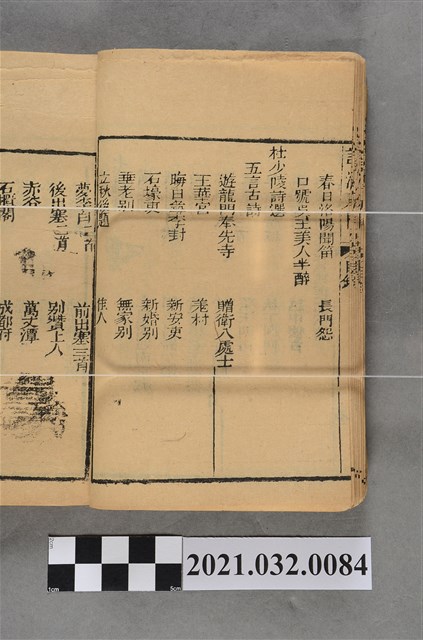 春日洛陽聞笛 長門怨
口號吳王美人半醉
杜少陵詩選
五言古詩
遊龍門奉先寺 贈衛八處士
玉華宮 羌村
晦日尋李封 新安吏
石壕吏 新婚別
垂老別 無家別
立秋後題 佳人
夢李白二首 前出塞三首
後出塞二首 別贊上人
赤谷 萬丈潭
石櫃閣 成都府
2021.032.0084
2cm
1cm
5cm